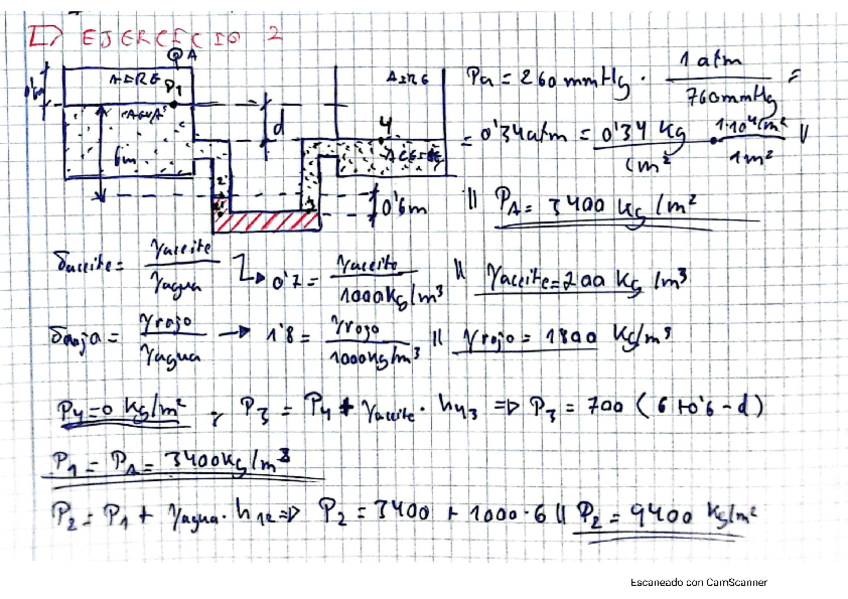 EJERCICIO 2
A
AIRE
P1
AGUA
0'6m
6m
d
AIRE
4
ACEITE
2
3
0'6m
Pa = 260 mmHg · 1 atm / 760 mmHg =
= 0'34 atm = 0'34 Kg / cm² · 1·10⁴ cm² / 1 m² //
// PA = 3400 Kg/m²
δaceite = γaceite / γagua → 0'7 = γaceite / 1000 Kg/m³ // γaceite = 700 Kg/m³
δroja = γrojo / γagua → 1'8 = γrojo / 1000 Kg/m³ // γrojo = 1800 Kg/m³
P4 = 0 Kg/m² ; P3 = P4 + γaceite · h43 => P3 = 700 (6+0'6-d)
P1 = PA = 3400 Kg/m²
P2 = P1 + γagua · h12 => P2 = 3400 + 1000·6 // P2 = 9400 Kg/m²
Escaneado con CamScanner